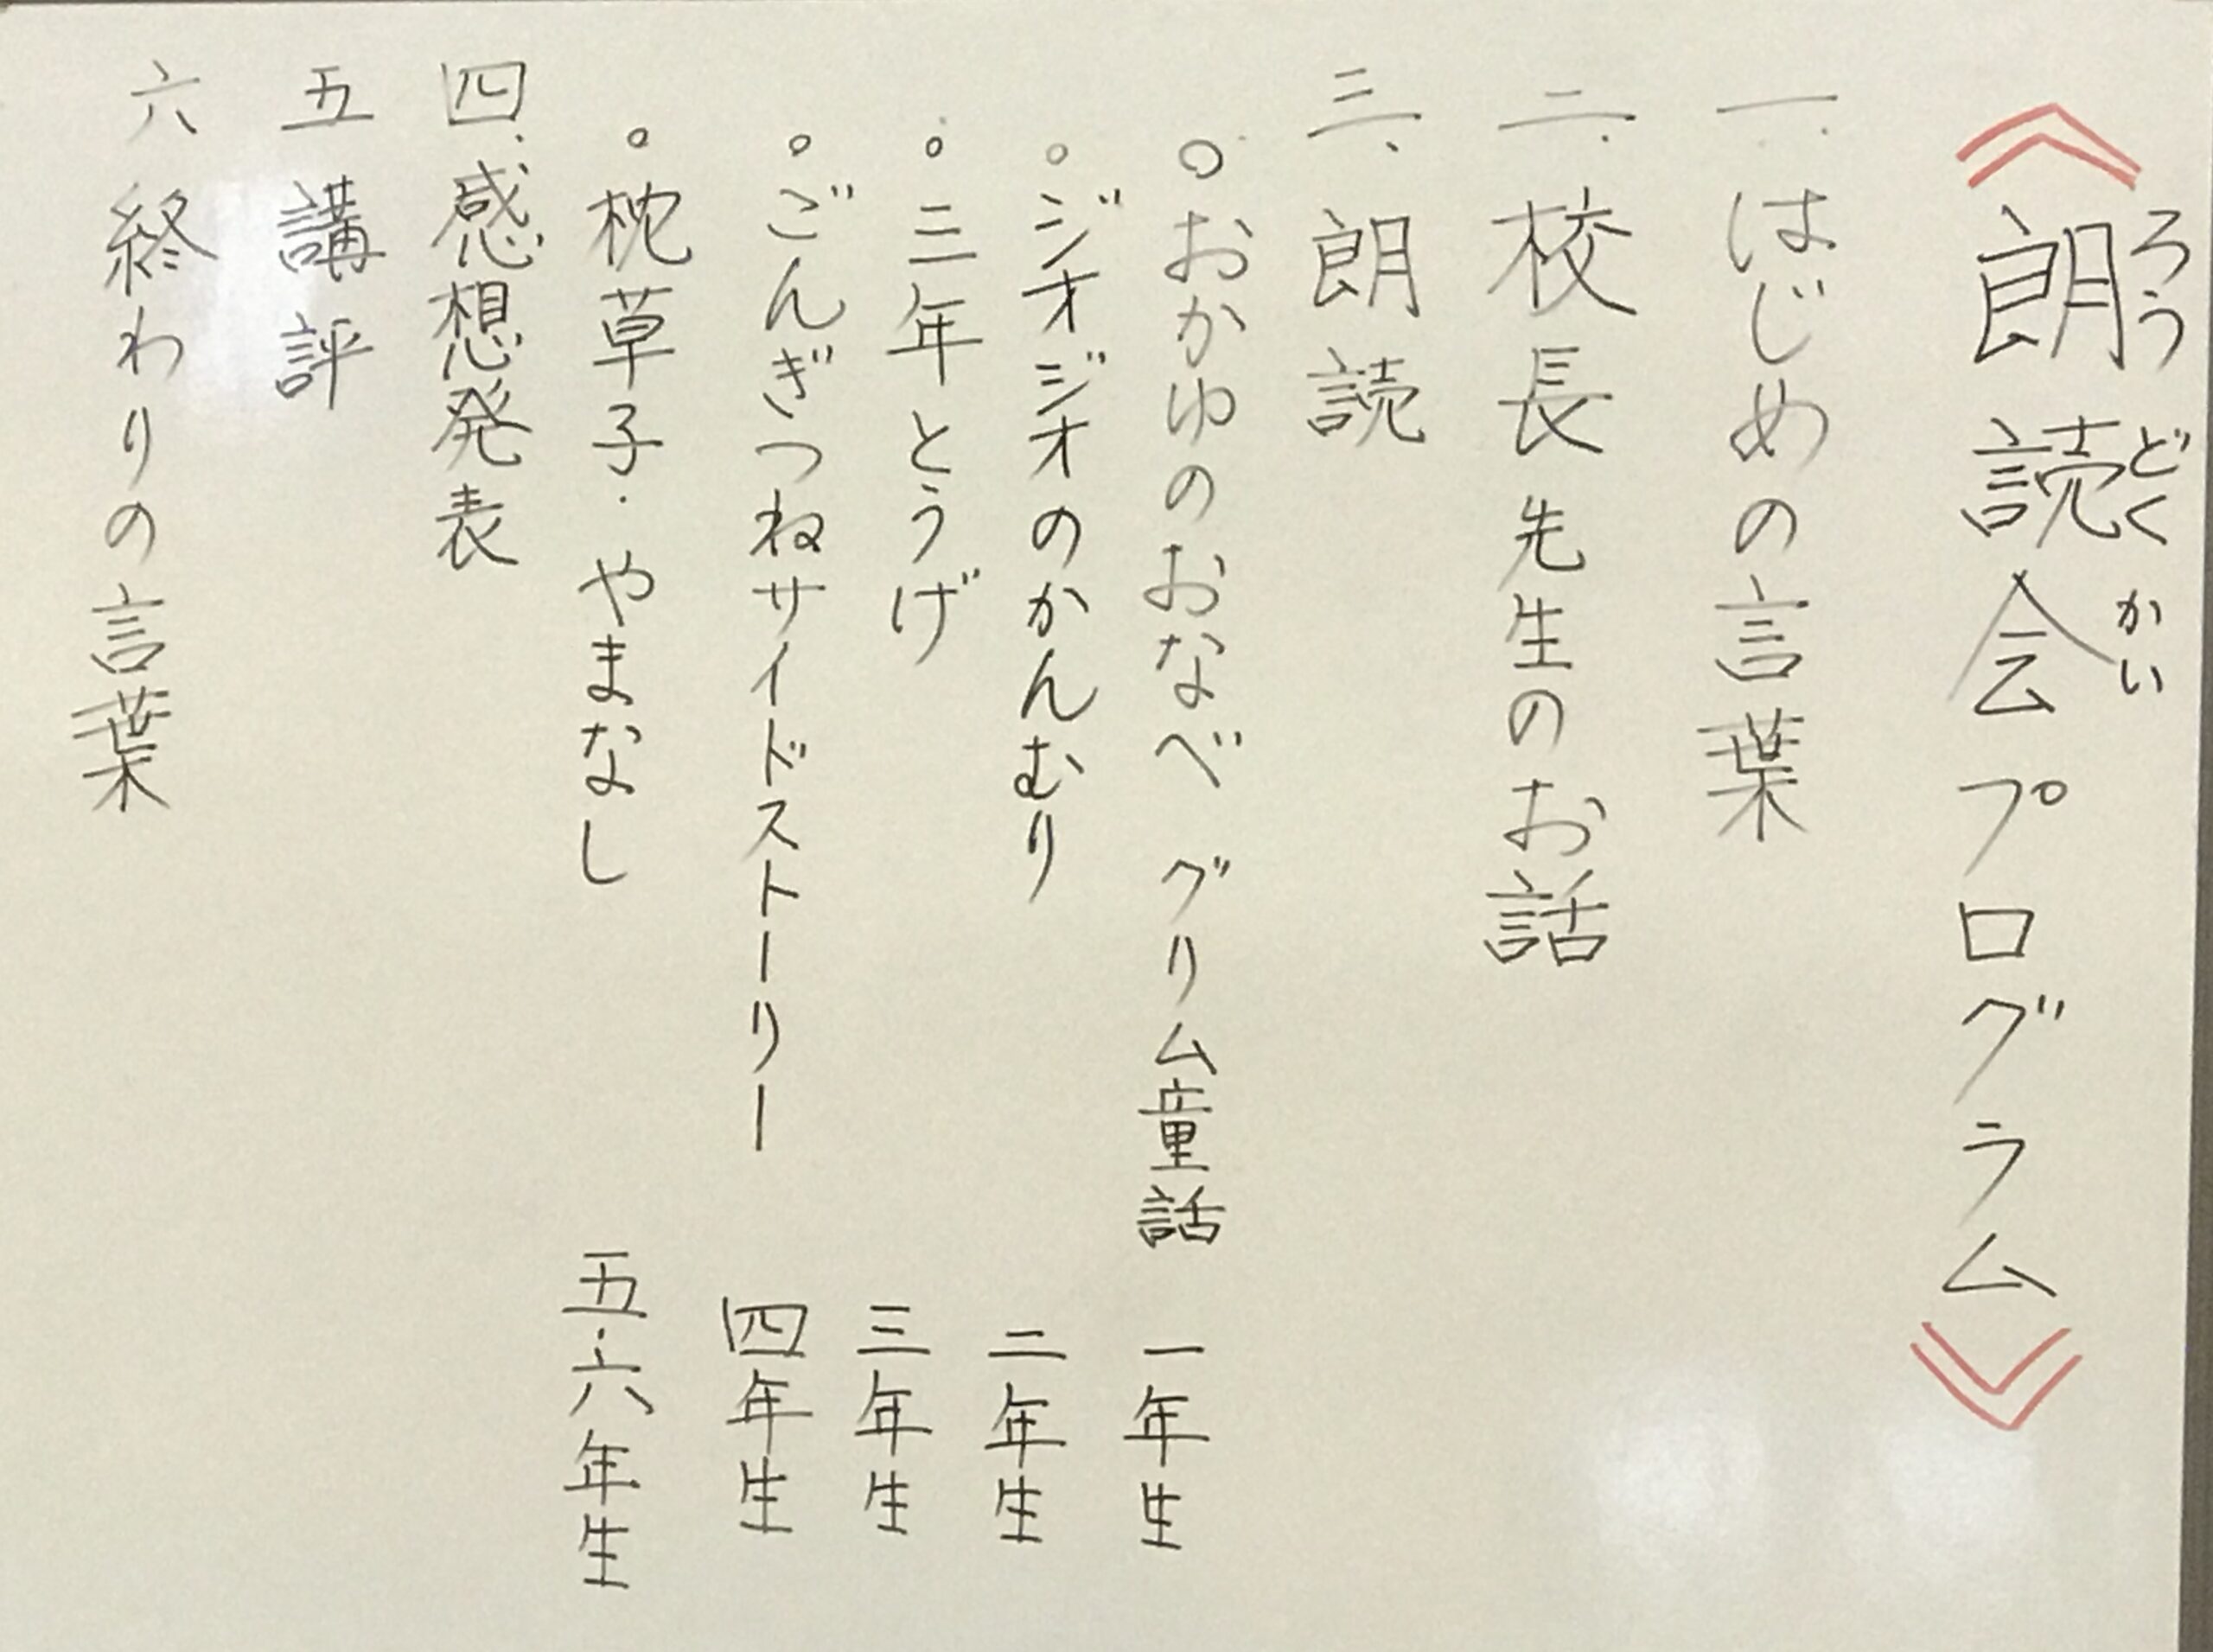 《朗読会プログラム》
ろうどくかい
一.はじめの言葉
二.校長先生のお話
三.朗読
○おかゆのおなべ グリム童話 一年生
○ジオジオのかんむり 二年生
○三年とうげ 三年生
○ごんぎつねサイドストーリー 四年生
○枕草子・やまなし 五・六年生
四.感想発表
五 講評
六 終わりの言葉